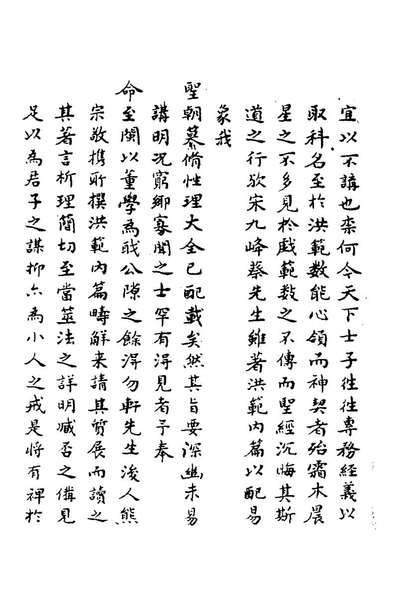 宜以不講也柰何今天下士子徃徃專務經義以
取科名至於洪範數能心領而神契者殆霜木晨
星之不多見於戲範數之不傳而聖經沉晦其斯
道之行欤宋九峰蔡先生雖著洪範內篇以配易
象我
聖朝纂脩性理大全已配載矣然其旨要深幽未易
講明况窮鄉寡聞之士罕有淂見者予奉
命至閩以董學為職公隙之餘淂勿軒先生後人熊
宗敬携所撰洪範內篇疇解来請其質展而讀之
其著言析理簡切至當筮法之詳明臧否之偹見
足以為君子之謀抑亦為小人之戒是将有裨於